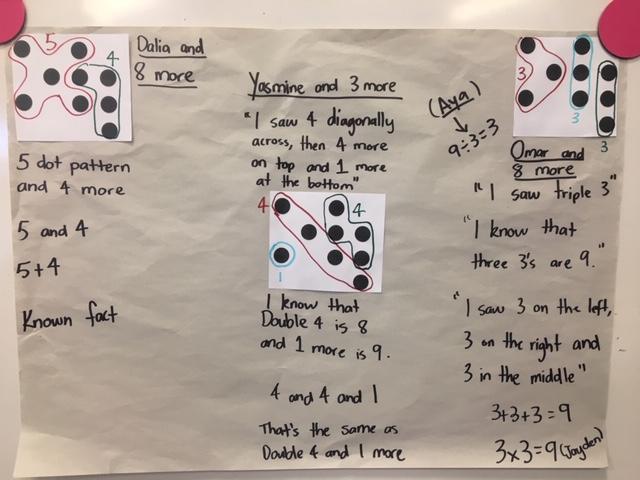 5
4
Dalia and
8 more
5 dot pattern
and 4 more
5 and 4
5+4
Known fact
Yasmine and 3 more
"I saw 4 diagonally
across, then 4 more
on top and 1 more
at the bottom"
4
4
1
I know that
Double 4 is 8
and 1 more is 9.
4 and 4 and 1
That's the same as
Double 4 and 1 more
(Aya)
9÷3=3
3
3
3
Omar and
8 more
"I saw triple 3"
"I know that
three 3's are 9."
"I saw 3 on the left,
3 on the right and
3 in the middle"
3+3+3=9
3×3=9 (Jayden)